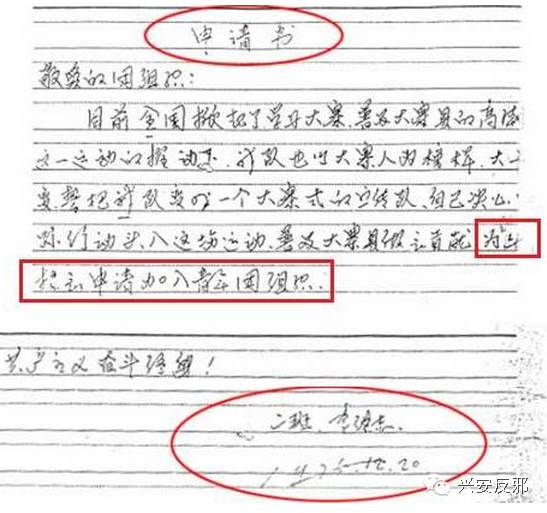 申请书
敬爱的团组织：
目前全国掀起了学习大寨、普及大寨县的高
这一运动的推动下，我队也以大寨人为榜样，大
变，誓把我队变成一个大寨式的宣传队，自己决心
行动 入这场运动，普及大寨县 为
申请加入青年团组织.
共产主义奋斗终身！
二班.李
1975.12.20
兴安反邪